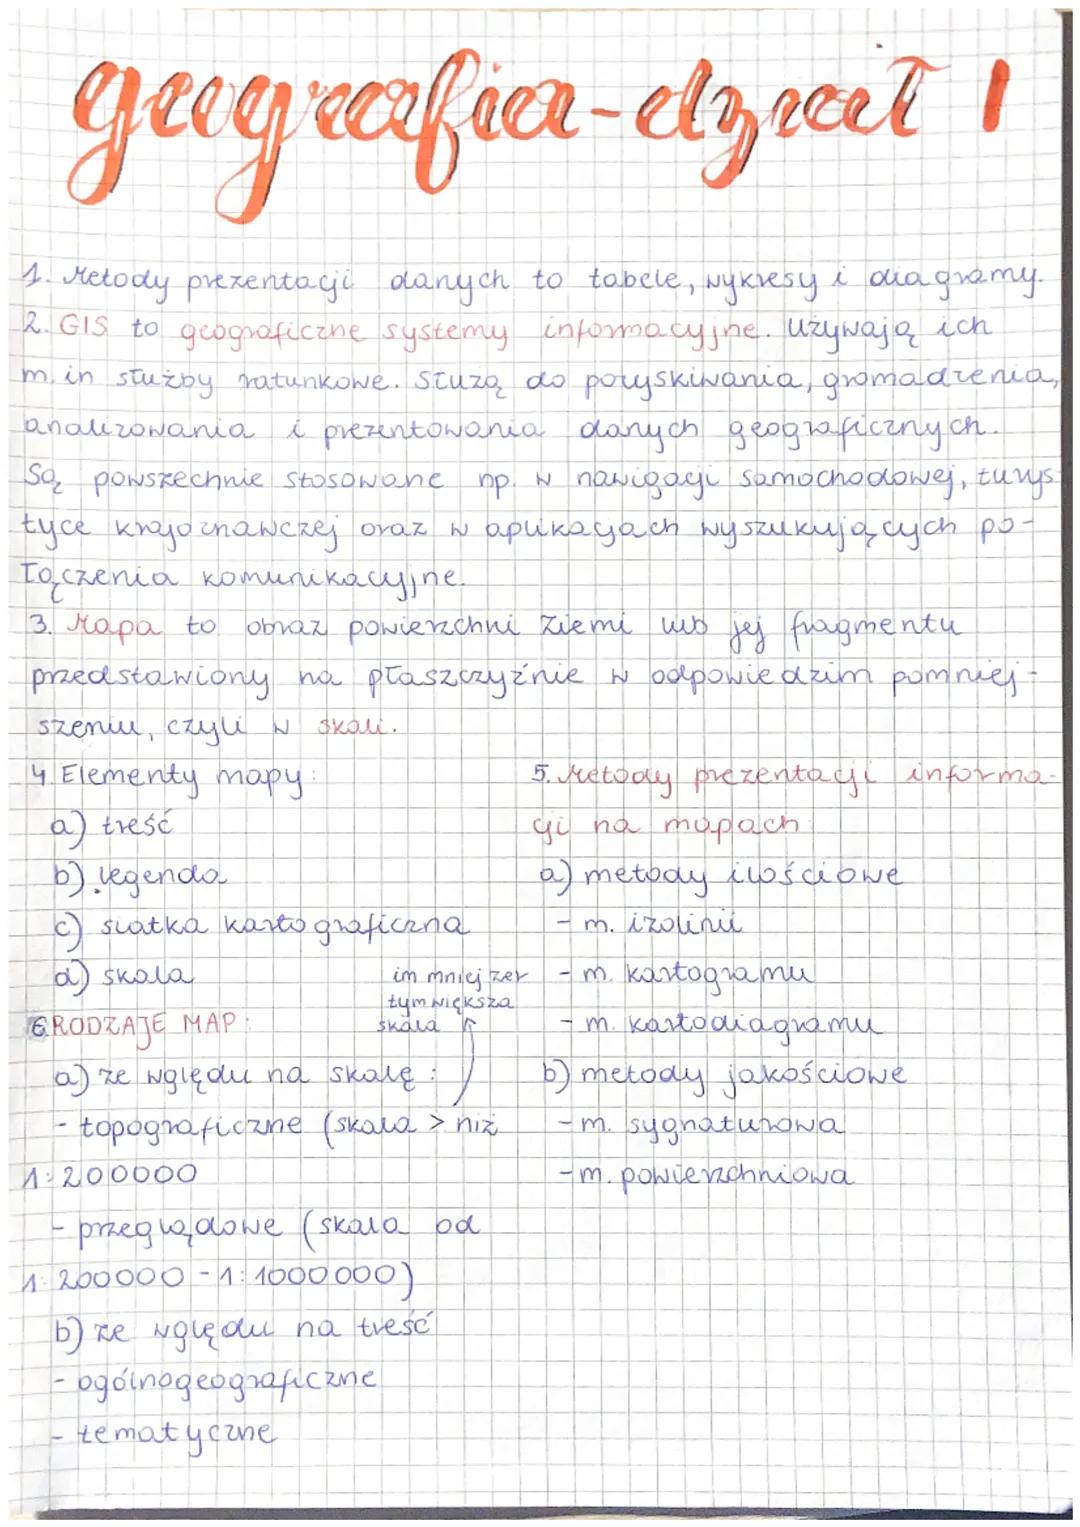 geografia-dział 1
1. Metody prezentacji danych to tabele, wykresy i diagramy.
2. GIS to geograficzne systemy informacyjne. Używają ich
m.in służby ratunkowe. Służą do pozyskiwania, gromadzenia,
analizowania i prezentowania danych geograficznych.
Są powszechnie stosowane np. w nawigacji samochodowej, turys
tyce krajoznawczej oraz w aplikacjach wyszukujących po-
łączenia komunikacyjne.
3. Mapa to obraz powierzchni Ziemi lub jej fragmentu
przedstawiony na płaszczyźnie w odpowiedzim pomniej-
szeniu, czyli w skali.
4. Elementy mapy:
a) treść
b) legenda
c) siatka kartograficzna
d) skala
5. Metody prezentacji informa-
cji na mapach
a) metody ilościowe
- m. izolinii
- m. kartogramu
- m. kartodiagramu
b) metody jakościowe
- m. sygnaturowa
- m. powierzchniowa
im mniej zer
tym większa
skala
6 RODZAJE MAP:
a) ze względu na skalę:
- topograficzne (skala > niż
1:200000
- przeglądowe (skala od
1:200000 - 1:1000000)
b) ze względu na treść
- ogólnogeograficzne
- tematyczne